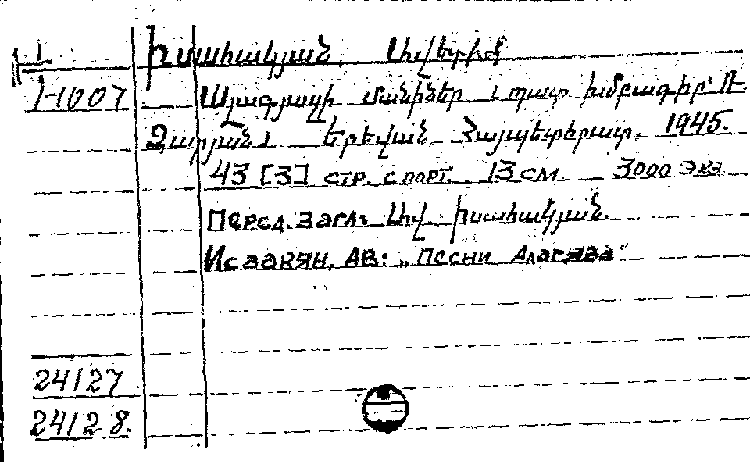 Իսահակյան, Ավետիք
1-1007 Ալագյազի մանիներ, պատ. խմբագիր՝ Ռ.
Զարյան, Երեվան Հայպետհրատ. 1945.
43 [3] стр. с порт. 13 см. 3000 экз
Перед. загл: Ավ. Իսահակյան.
Исаакян, Ав: „Песни Алагяза"
24127
24128.